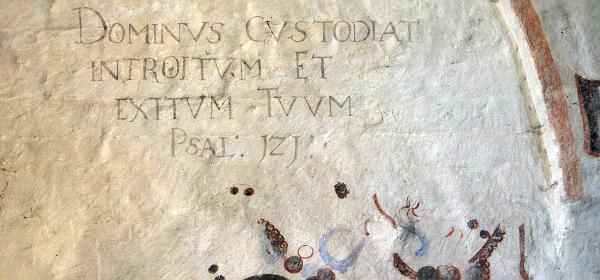 DOMINVS CVSTODIAT
INTROITVM ET
EXITVM TVVM
PSAL: JZJ: